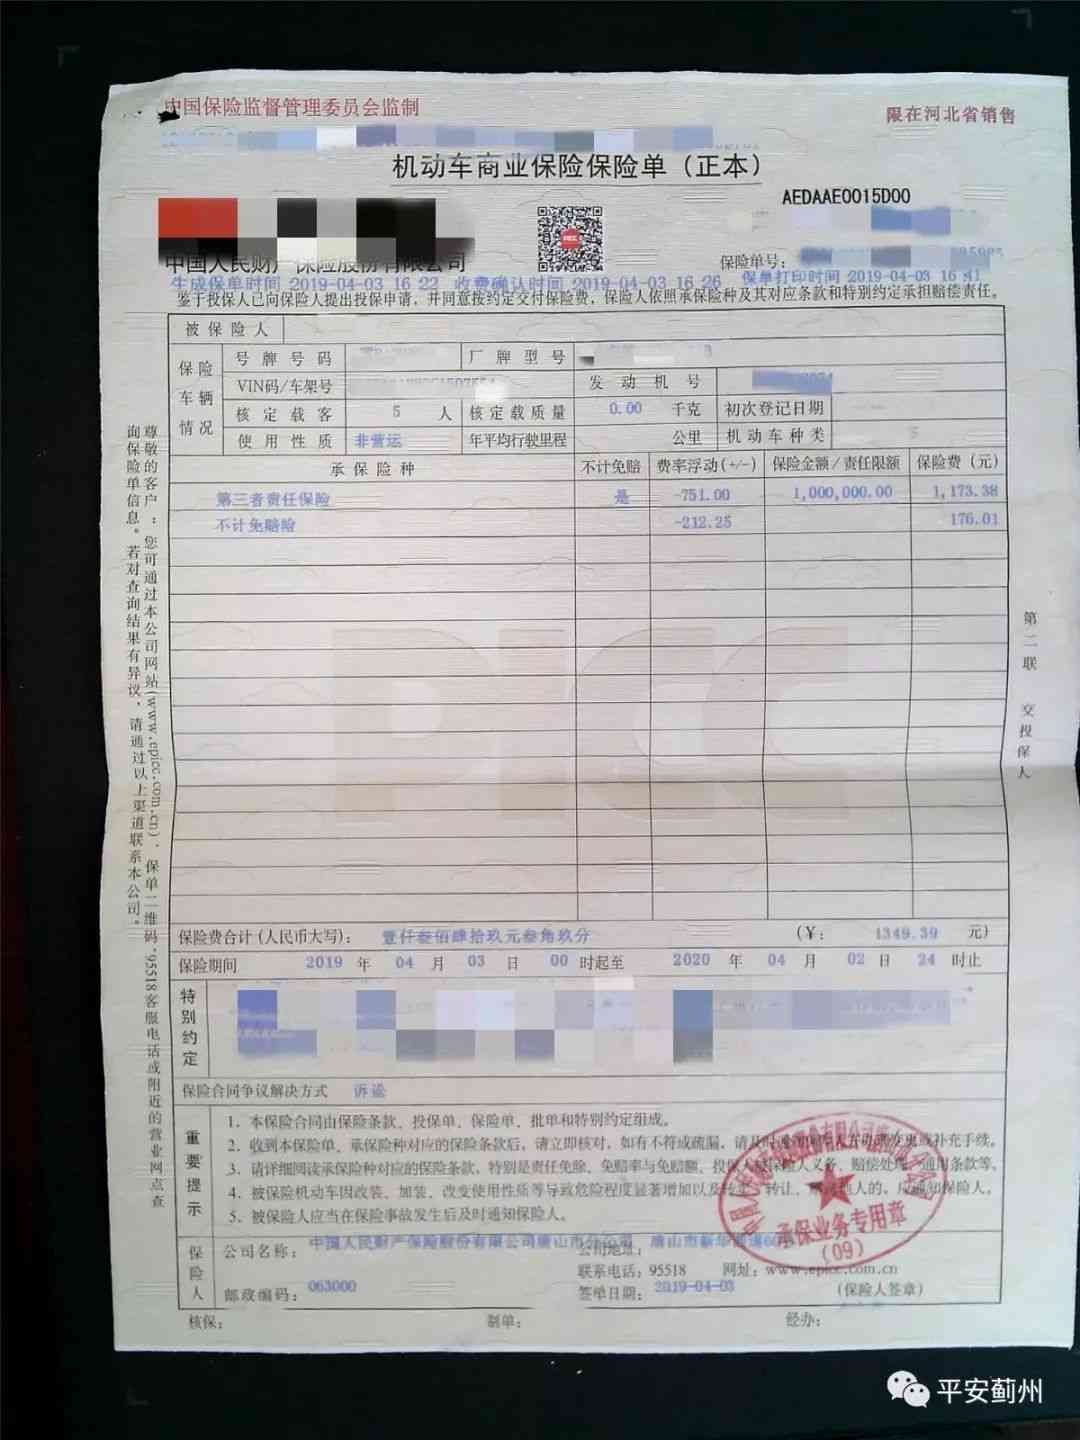 中国保险监督管理委员会监制
限在河北省销售
机动车商业保险保险单（正本）
AEDAAE0015D00
中国人民财产保险股份有限公司
保险单号：
生成保单时间 2019-04-03 16 22 收费确认时间 2019-04-03 16 26 保单打印时间 2019-04-03 16 41
鉴于投保人已向保险人提出投保申请，并同意按约定交付保险费，保险人依照承保险种及其对应条款和特别约定承担赔偿责任。
被保险人
保险车辆情况
号牌号码 厂牌型号
VIN码/车架号 发动机号
核定载客 5 人 核定载质量 0.00 千克 初次登记日期
使用性质 非营运 年平均行驶里程 公里 机动车种类
承保险种 不计免赔 费率浮动(+/-) 保险金额/责任限额 保险费（元）
第三者责任保险 是 -751.00 1,000,000.00 1,173.38
不计免赔险 -212.25 176.01
PICC
保险费合计(人民币大写)： 壹仟叁佰肆拾玖元叁角玖分 (¥： 1349.39 元)
保险期间 2019 年 04 月 03 日 00 时起至 2020 年 04 月 02 日 24 时止
特别约定
保险合同争议解决方式 诉讼
重要提示
1. 本保险合同由保险条款、投保单、保险单、批单和特别约定组成。
2. 收到本保险单、承保险种对应的保险条款后，请立即核对，如有不符或疏漏，请及时通知保险人并办理变更或补充手续。
3. 请详细阅读承保险种对应的保险条款，特别是责任免除、免赔率与免赔额、投保人被保险人义务、赔偿处理、通用条款等。
4. 被保险机动车因改装、加装、改变使用性质等导致危险程度显著增加以及转卖、转让、赠送他人的，应通知保险人。
5. 被保险人应当在保险事故发生后及时通知保险人。
保险人
公司名称： 中国人民财产保险股份有限公司唐山市分公司 公司地址： 唐山市新华
联系电话：95518 网址：www.epicc.com.cn
邮政编码： 063000 签单日期： 2019-04-03 （保险人签章）
承保业务专用章
(09)
核保： 制单： 经办：
尊敬的客户：您可通过本公司网站(www.epicc.com.cn)、保单二维码、95518客服电话或附近的营业网点查
询保险单信息。若对查询结果有异议，请通过以上渠道联系本公司。
第二联 交投保人
平安蓟州